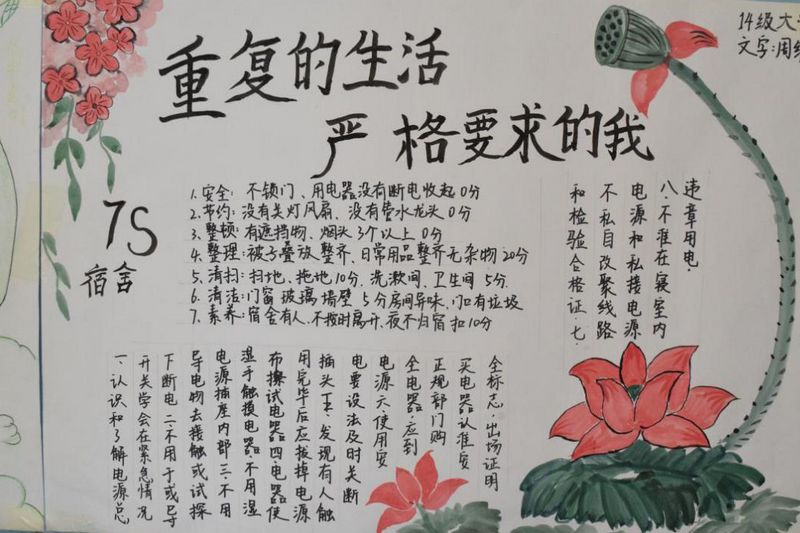 14级大
文字:周
重复的生活
严格要求的我
7S
宿舍
1.安全: 不锁门、用电器没有断电收起0分
2.节约: 没有关灯风扇、没有管水龙头0分
3.整顿: 有遮挡物、烟头3个以上0分
4.整理: 被子叠放整齐、日常用品整齐无杂物20分
5.清扫: 扫地、拖地10分.洗漱间、卫生间5分.
6.清洁: 门窗玻璃墙壁5分房间异味、门口有垃圾
7.素养: 宿舍有人、不按时离开、夜不归宿扣10分
一、认识和了解电源总
开关学会在紧急情况
下断电 二、不用手或导
导电物去接触或试探
电源插座内部 三、不用
湿手触摸电器不用湿
布擦试电器 四电器使
用完毕后应拔掉电源
插头 五、发现有人触
电要设法及时关断
电源 六使用安
全电器·应到
正规部门购
买电器认准安
全标志·出场证明
和检验合格证·七·
不私自改聚线路
电源和私接电源
八·不准在寝室内
违章用电·